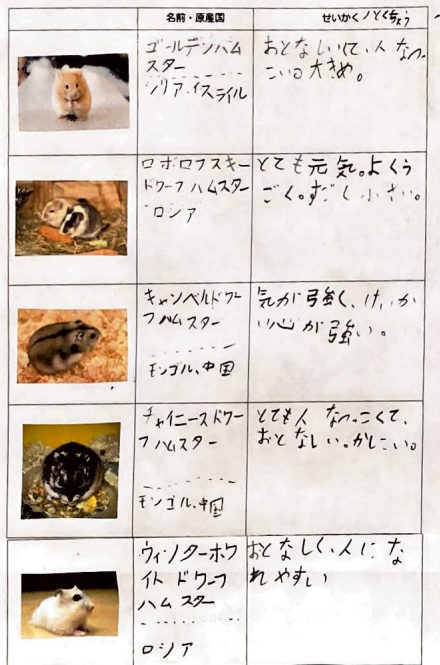 名前・原産国
せいかく/とくちょう
ゴールデンハム
スター
シリア、イスライル
おとなしいて、人なつ
こい。大きめ。
ロボロフスキー
ドワーフハムスター
ロシア
とても元気。よくう
ごく。すごし小さい。
キャンベルドワー
フハムスター
モンゴル、中国
気が強く、けいか
い心が強い。
チャイニーズドワー
フハムスター
モンゴル、中国
とても人なつっこくて、
おとなしい。かしこい。
ウィンターホワ
イトドワーフ
ハムスター
ロシア
おとなしく、人にな
れやすい